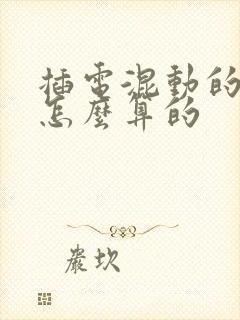 插電混動的
怎麼算的
嚴坎